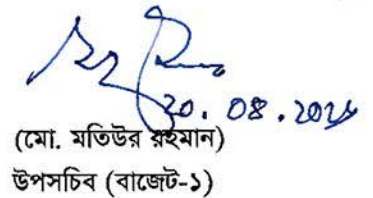 20. 08. 202
(মো. মতিউর রহমান)
উপসচিব (বাজেট-১)